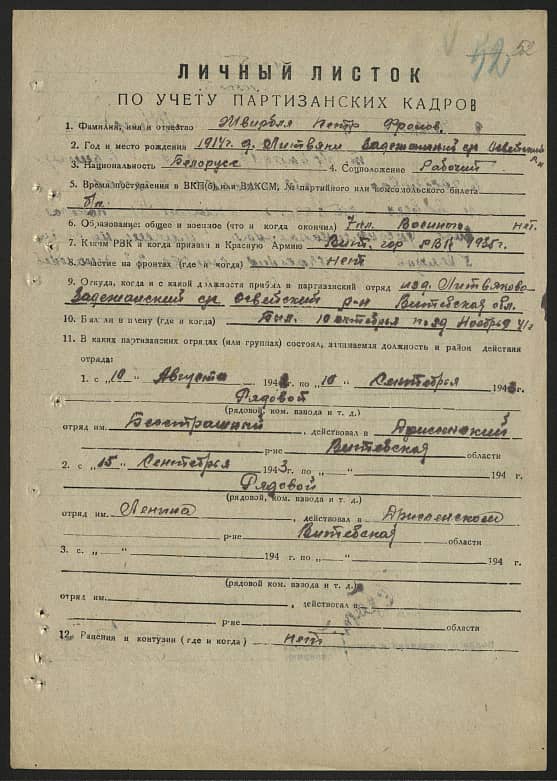 52 52
ЛИЧНЫЙ ЛИСТОК
ПО УЧЕТУ ПАРТИЗАНСКИХ КАДРОВ
1. Фамилия, имя и отчество Жвирбля Петр Фомов.
2. Год и место рождения 1917 г. д. Литвяки Задежанский с/с Освейский р-н
3. Национальность Белорусс 4. Соцположение Рабочий
5. Время поступления в ВКП(б) или ВЛКСМ, № партийного или комсомольского билета
б/п.
6. Образование: общее и военное (что и когда окончил) 7 кл. Военного нет.
7. Каким РВК и когда призван в Красную Армию Вит. гор РВК
8. Участие на фронтах (где и когда) нет
9. Откуда, когда и с какой должности прибыл в партизанский отряд из д. Литвяково
Задежанский с/с Освейский р-н Витебская обл.
10. Был ли в плену (где и когда) Был. 10 октября по 29 Ноября 41 г
11. В каких партизанских отрядах (или группах) состоял, занимаемая должность и район действия
отряда:
1. с „10 “ Августа 1943 г. по „10 “ Сентебря 1943 г.
Рядовой
(рядовой, ком. взвода и т. д.)
отряд им. Бесстрашный , действовал в Дрисенский
р-не Витебская области
2. с „15 “ Сентебря 1943 г. по „ “ 194 г.
Рядовой
(рядовой, ком. взвода и т. д.)
отряд им. Ленина , действовал в Дрисенском
р-не Витебская области
3. с. „ “ 194 г. по „ “ 194 г.
(рядовой, ком. взвода и т. д.)
отряд им. , действовал в
р-не области
12. Ранения и контузии (где и когда) нет